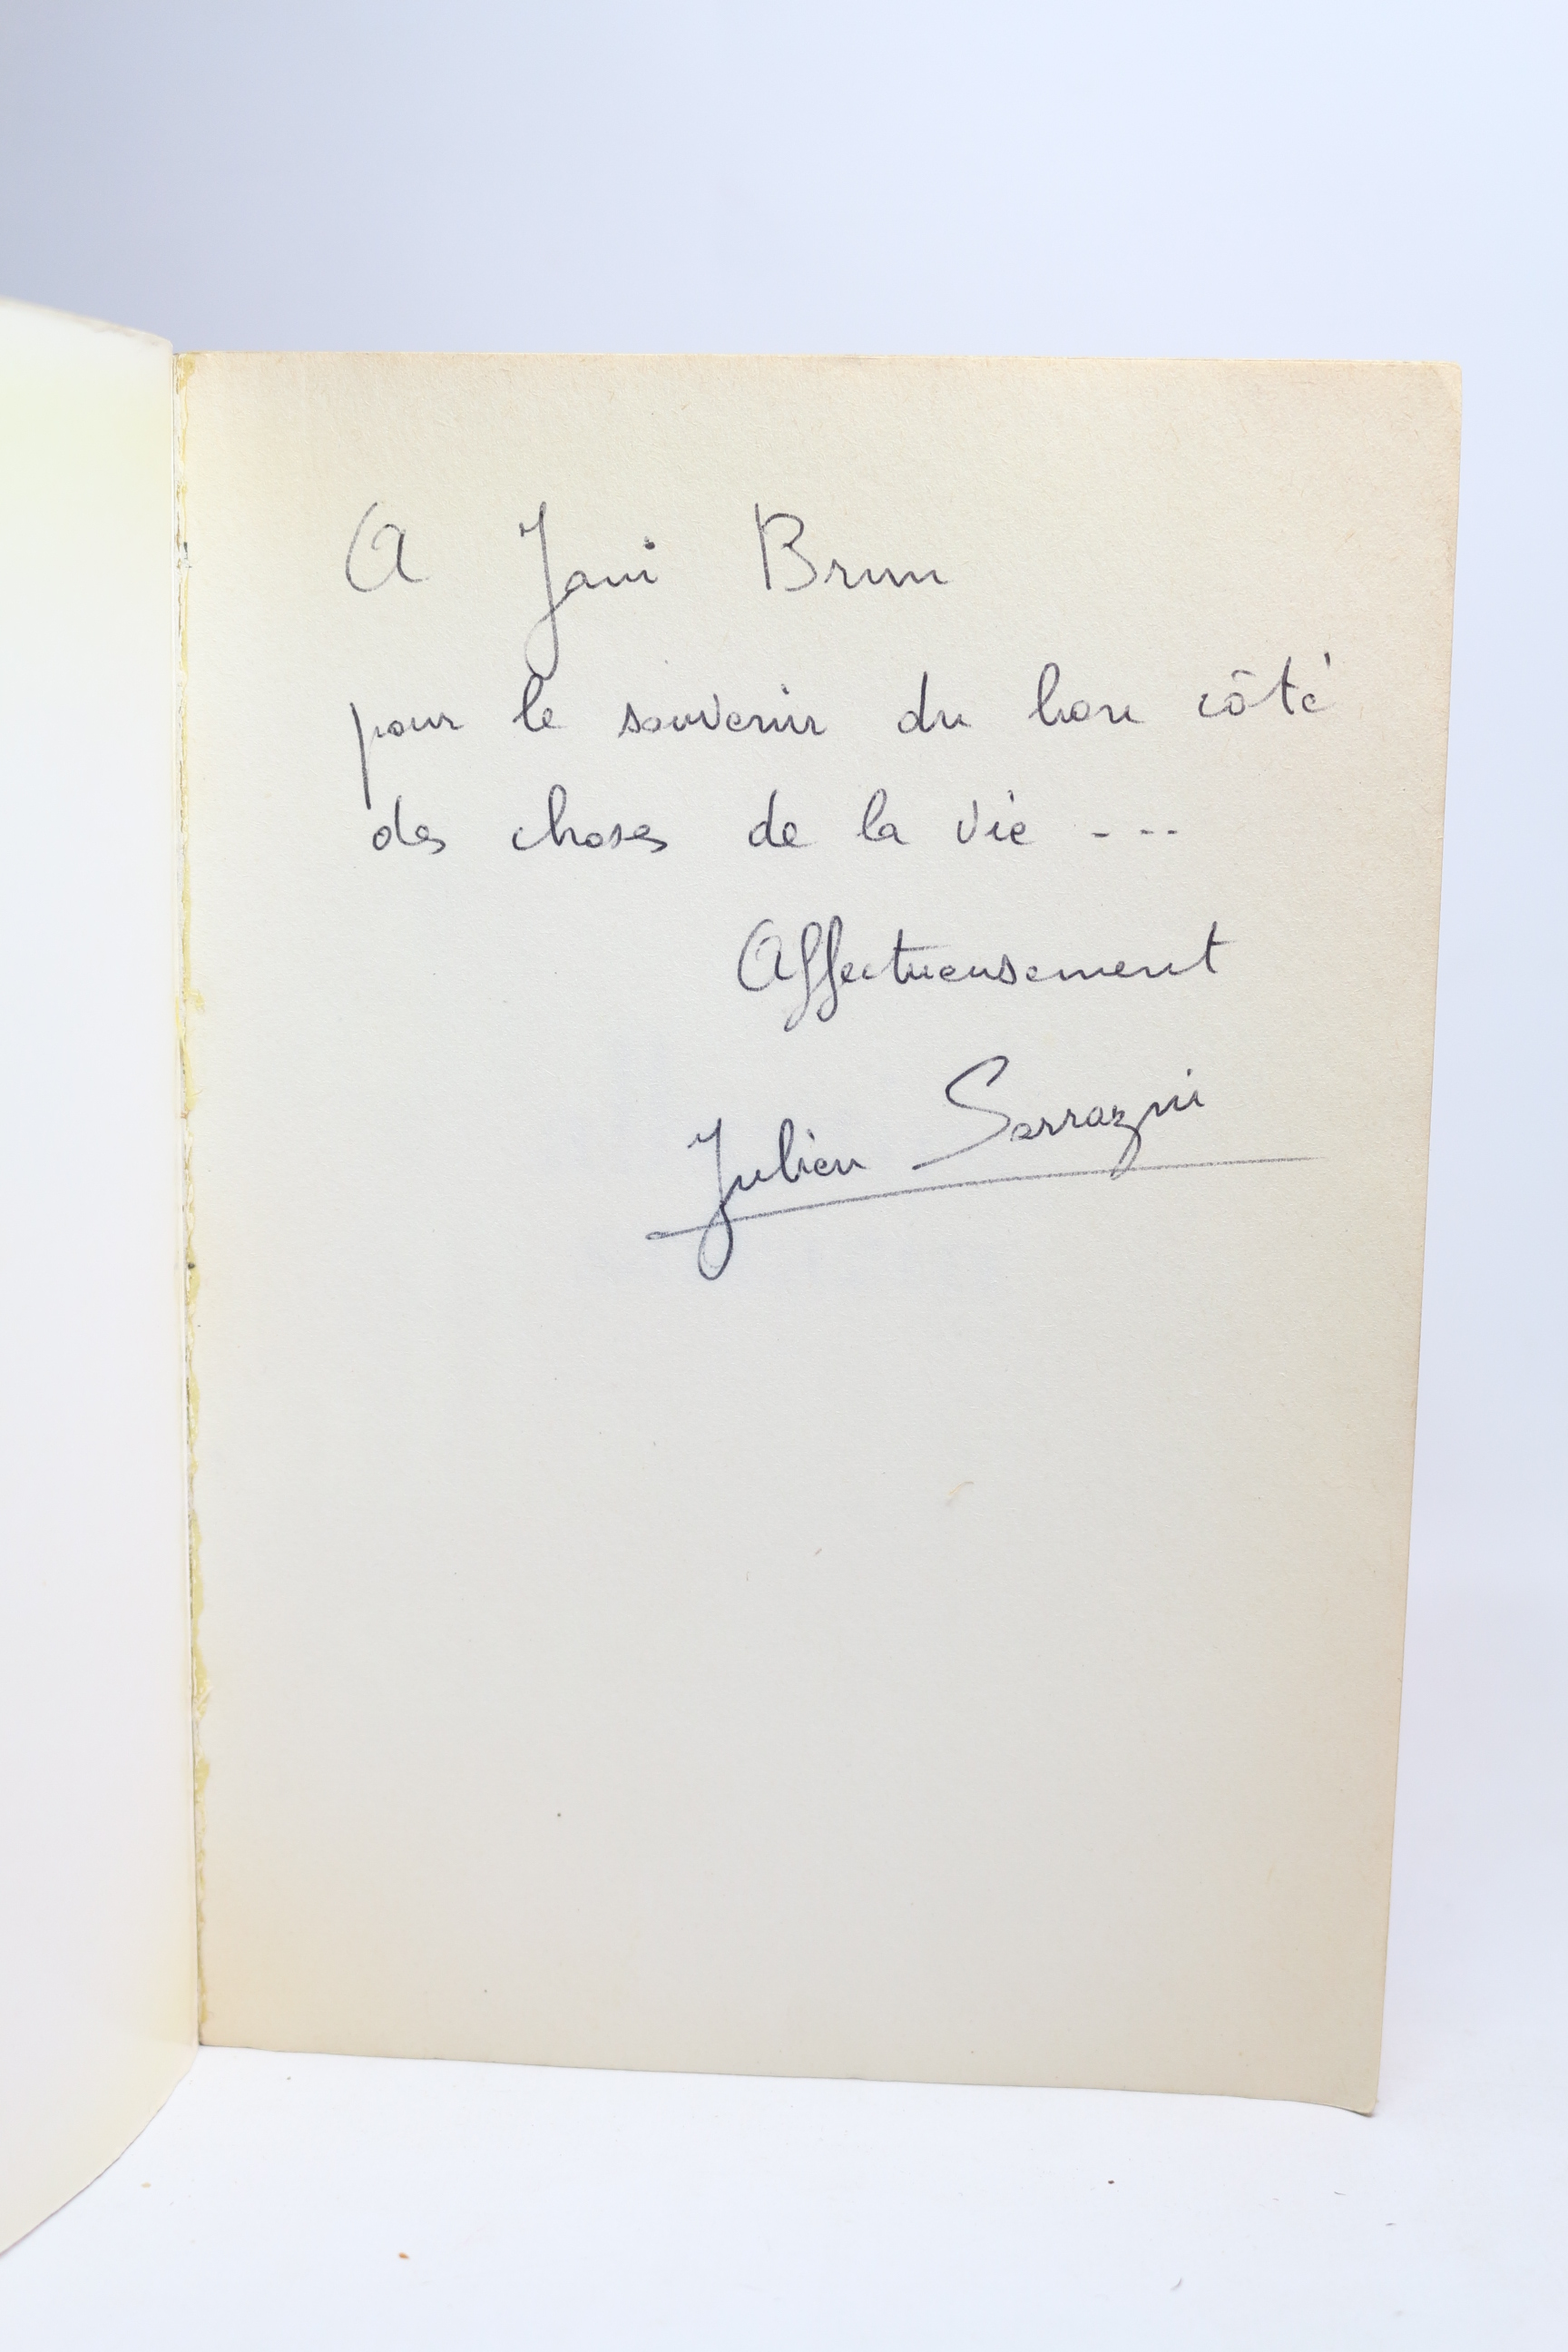 A Jani Brun
pour le souvenir du bon côté
des choses de la vie ...
Affectueusement
Julien Sarrazin